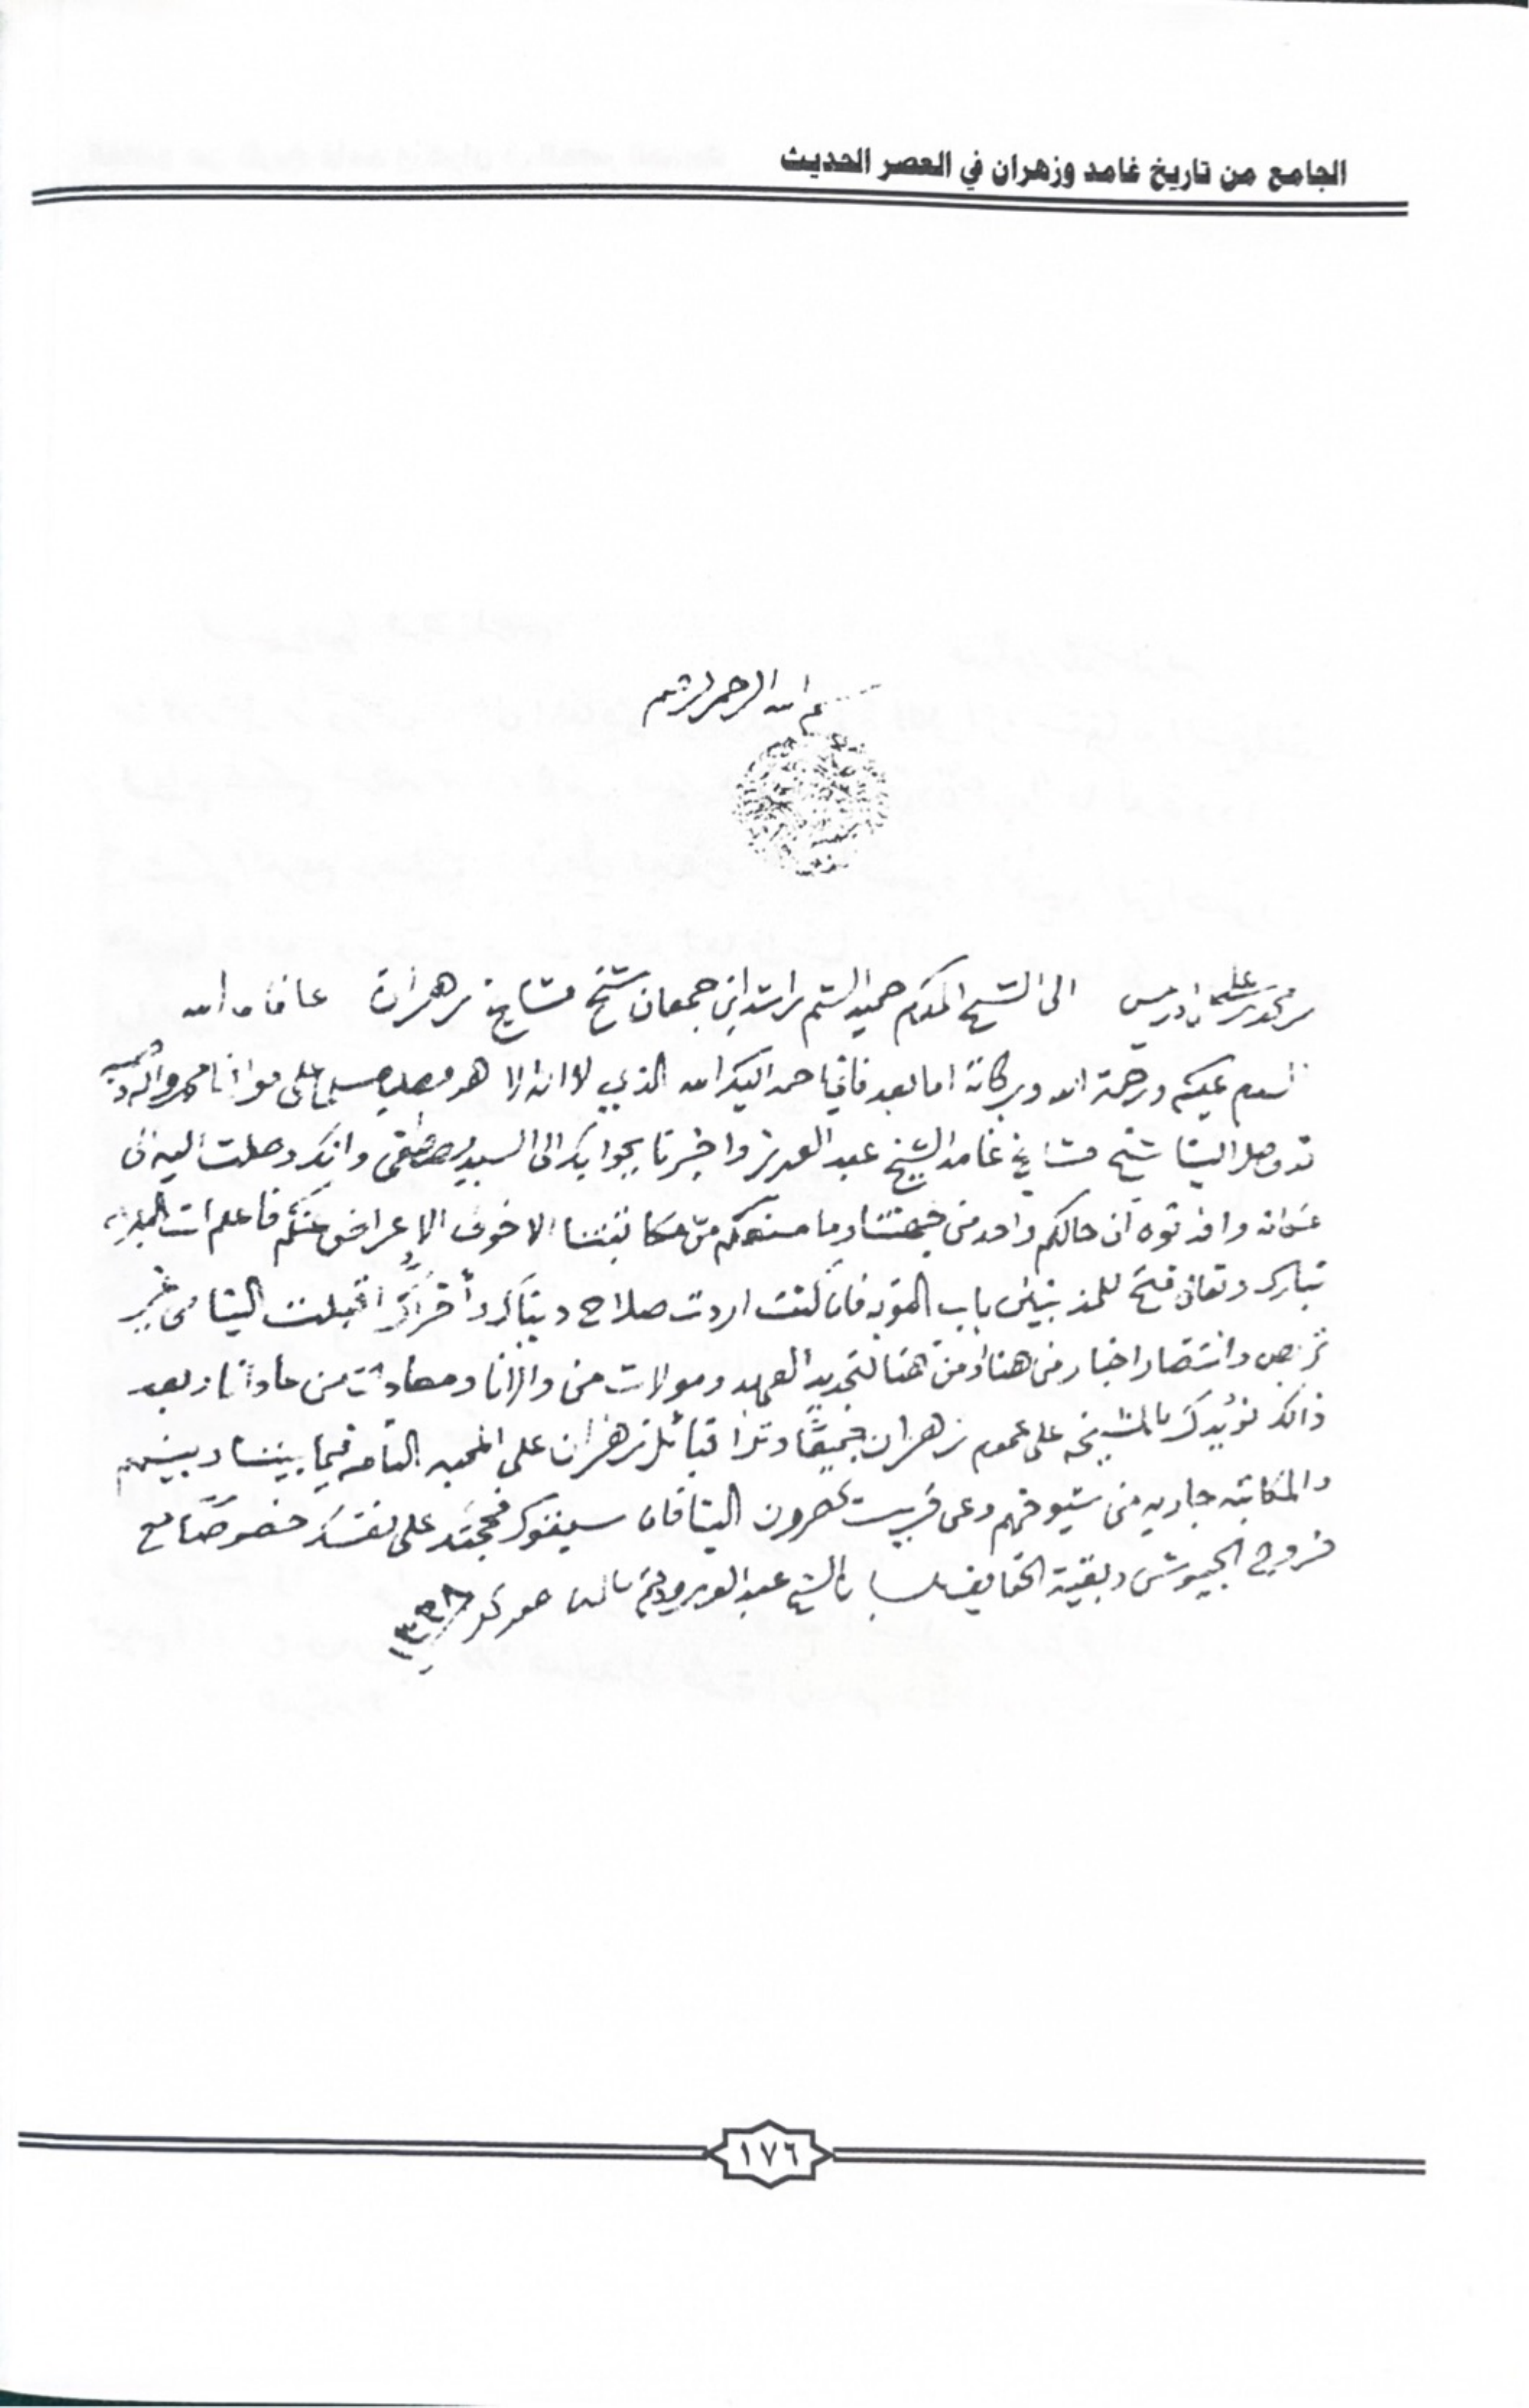 الجامع من تاريخ غامد وزهران في العصر الحديث
بسم الله الرحمن الرحيم
من محمد بن علي بن ادريس الى الشيخ المكرم راشد ابن جمعان شيخ مشايخ زهران عافاه الله
السلام عليكم ورحمة الله وبركاته اما بعد فانا احمد اليكم الله الذي لا اله الا هو على مولانا محمد واله
قد وصل الينا شيخ مشايخ غامد الشيخ عبد العزيز واخبرنا بجوابك الى السيد مصطفى وانك وصلت اليه
ان حالكم واحد من جهتنا وما منعكم من مكاتبتنا الا خوف الاعراض عنكم فاعلم ان الله
تبارك وتعالى فتح للمذنبين باب التوبه فان كنت اردت صلاح دنياك وأخراك اقبلت الينا من غير
تربص وانتضار اخبار من هنا ومن هنا لتجديد العهد ومولات من والانا ومعادات من عادانا وبعد
ذالك نؤيدك بالمشيخه على عموم زهران جميعًا وترا قبائل زهران على المحبه التامه فيما بيننا وبينهم
والمكاتبه جاريه من شيوخهم وعن قريب يحضرون الينا فان سبقوك على نفسك خصوصًا مع
خروج الجيوش وبقية الشيخ عبد العزيز
١٧٦